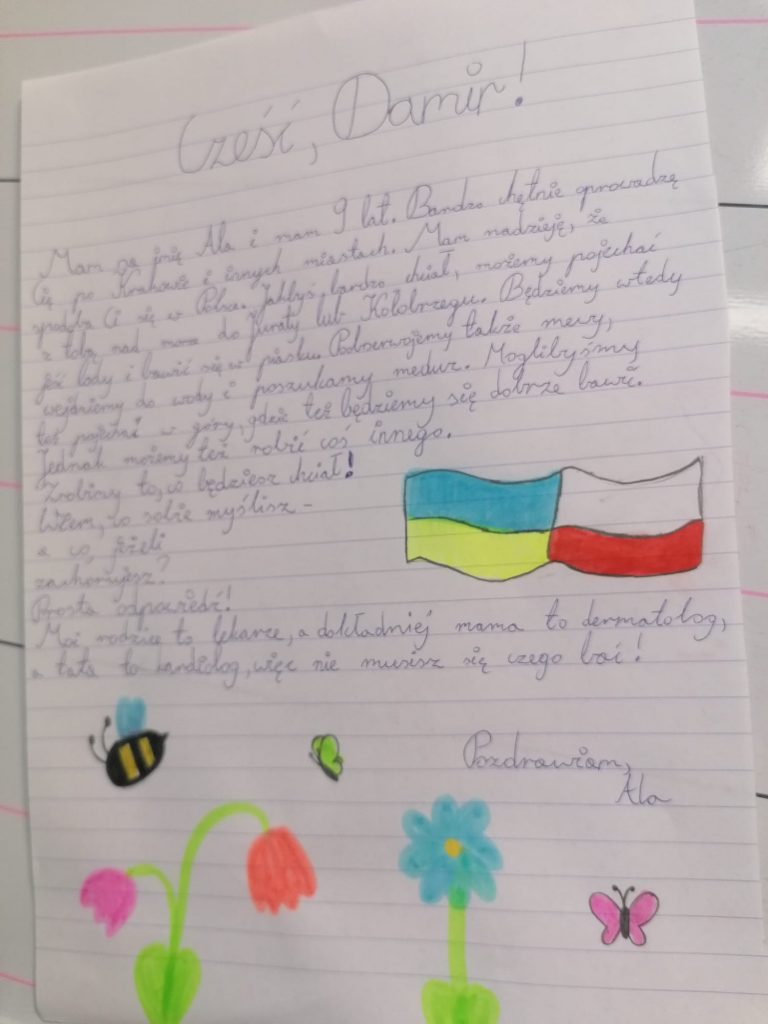 Cześć, Damir!
Mam na imię Ala i mam 9 lat. Bardzo chętnie oprowadzę
Cię po Krakowie i innych miastach. Mam nadzieję, że
spodoba Ci się w Polsce. Jakbyś bardzo chciał, możemy pojechać
z tobą nad morze do Juraty lub Kołobrzegu. Będziemy wtedy
jeść lody i bawić się w piasku. Poobserwujemy także mewy,
wejdziemy do wody i poszukamy meduz. Moglibyśmy
też pojechać w góry, gdzie też będziemy się dobrze bawić.
Jednak możemy też robić coś innego.
Zrobimy to, co będziesz chciał!
Wiem, co sobie myślisz –
a co, jeżeli
zachorujesz?
Prosta odpowiedź!
Moi rodzice to lekarze, a dokładniej mama to dermatolog,
a tata to kardiolog, więc nie musisz się czego bać!
Pozdrawiam,
Ala